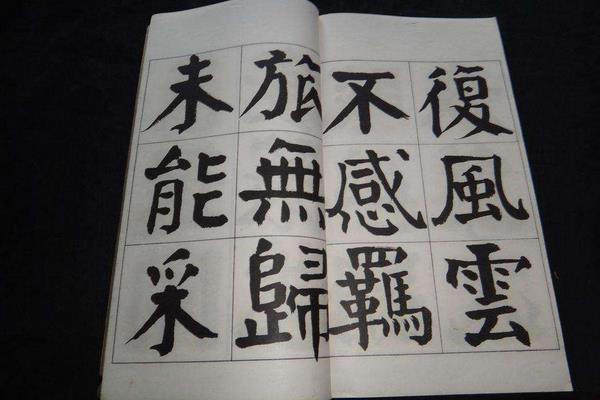 復風雲
不感羈
旅無歸
未能采